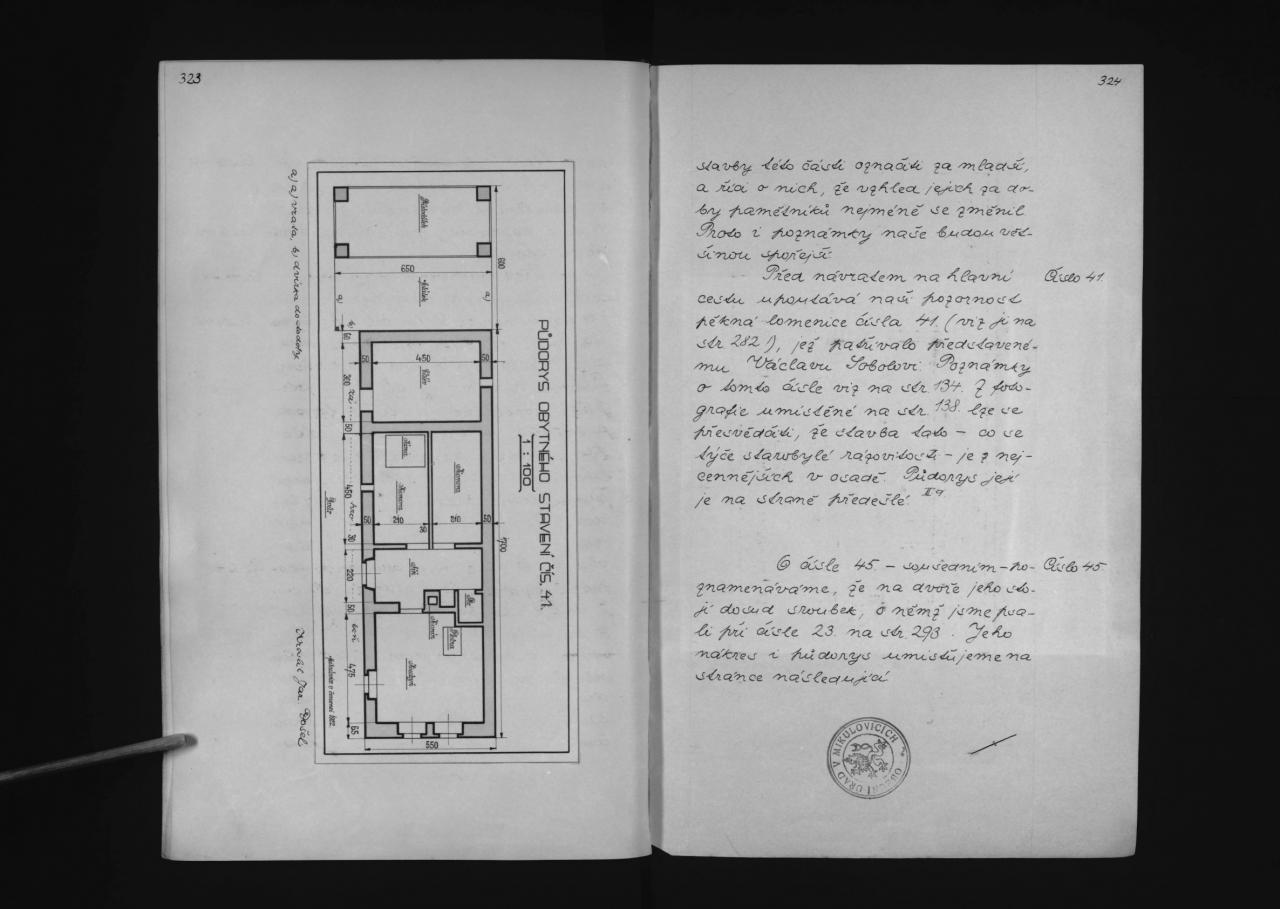 323
PŮDORYS OBYTNÉHO STAVENÍ ČÍS. 41.
1 : 100
a) a) vrata, b) dvírka do stodoly
650
600
a)
a)
b)
50
50
450
50
300
50
450
50
210
210
50
30
1700
Síň
220
50
475
65
550
Kreslil Jar. Došel
324
stavby této části označiti za mladší,
a říci o nich, že vzhled jejich za do-
by pamětníků nejméně se změnil.
Proto i poznámky naše budou vět-
šinou spořejší.
Před návratem na hlavní
Číslo 41.
cestu upoutává naši pozornost
pěkná lomenice čísla 41. (viz ji na
str. 282!), jež patřívalo představené-
mu Václavu Sobolovi. Poznámky
o tomto čísle viz na str. 134. Z foto-
grafie umístěné na str. 138. lze se
přesvědčiti, že stavba tato – co se
týče starobylé rázovitosti – je z nej-
cennějších v osadě. Půdorys její
je na straně předešlé.
O čísle 45 – sousedním – po-
Číslo 45
znamenáváme, že na dvoře jeho sto-
jí dosud sroubek, o němž jsme psa-
li při čísle 23. na str. 293. Jeho
nákres i půdorys umisťujeme na
stránce následující
OBECNÍ ÚŘAD V MIKULOVICÍCH